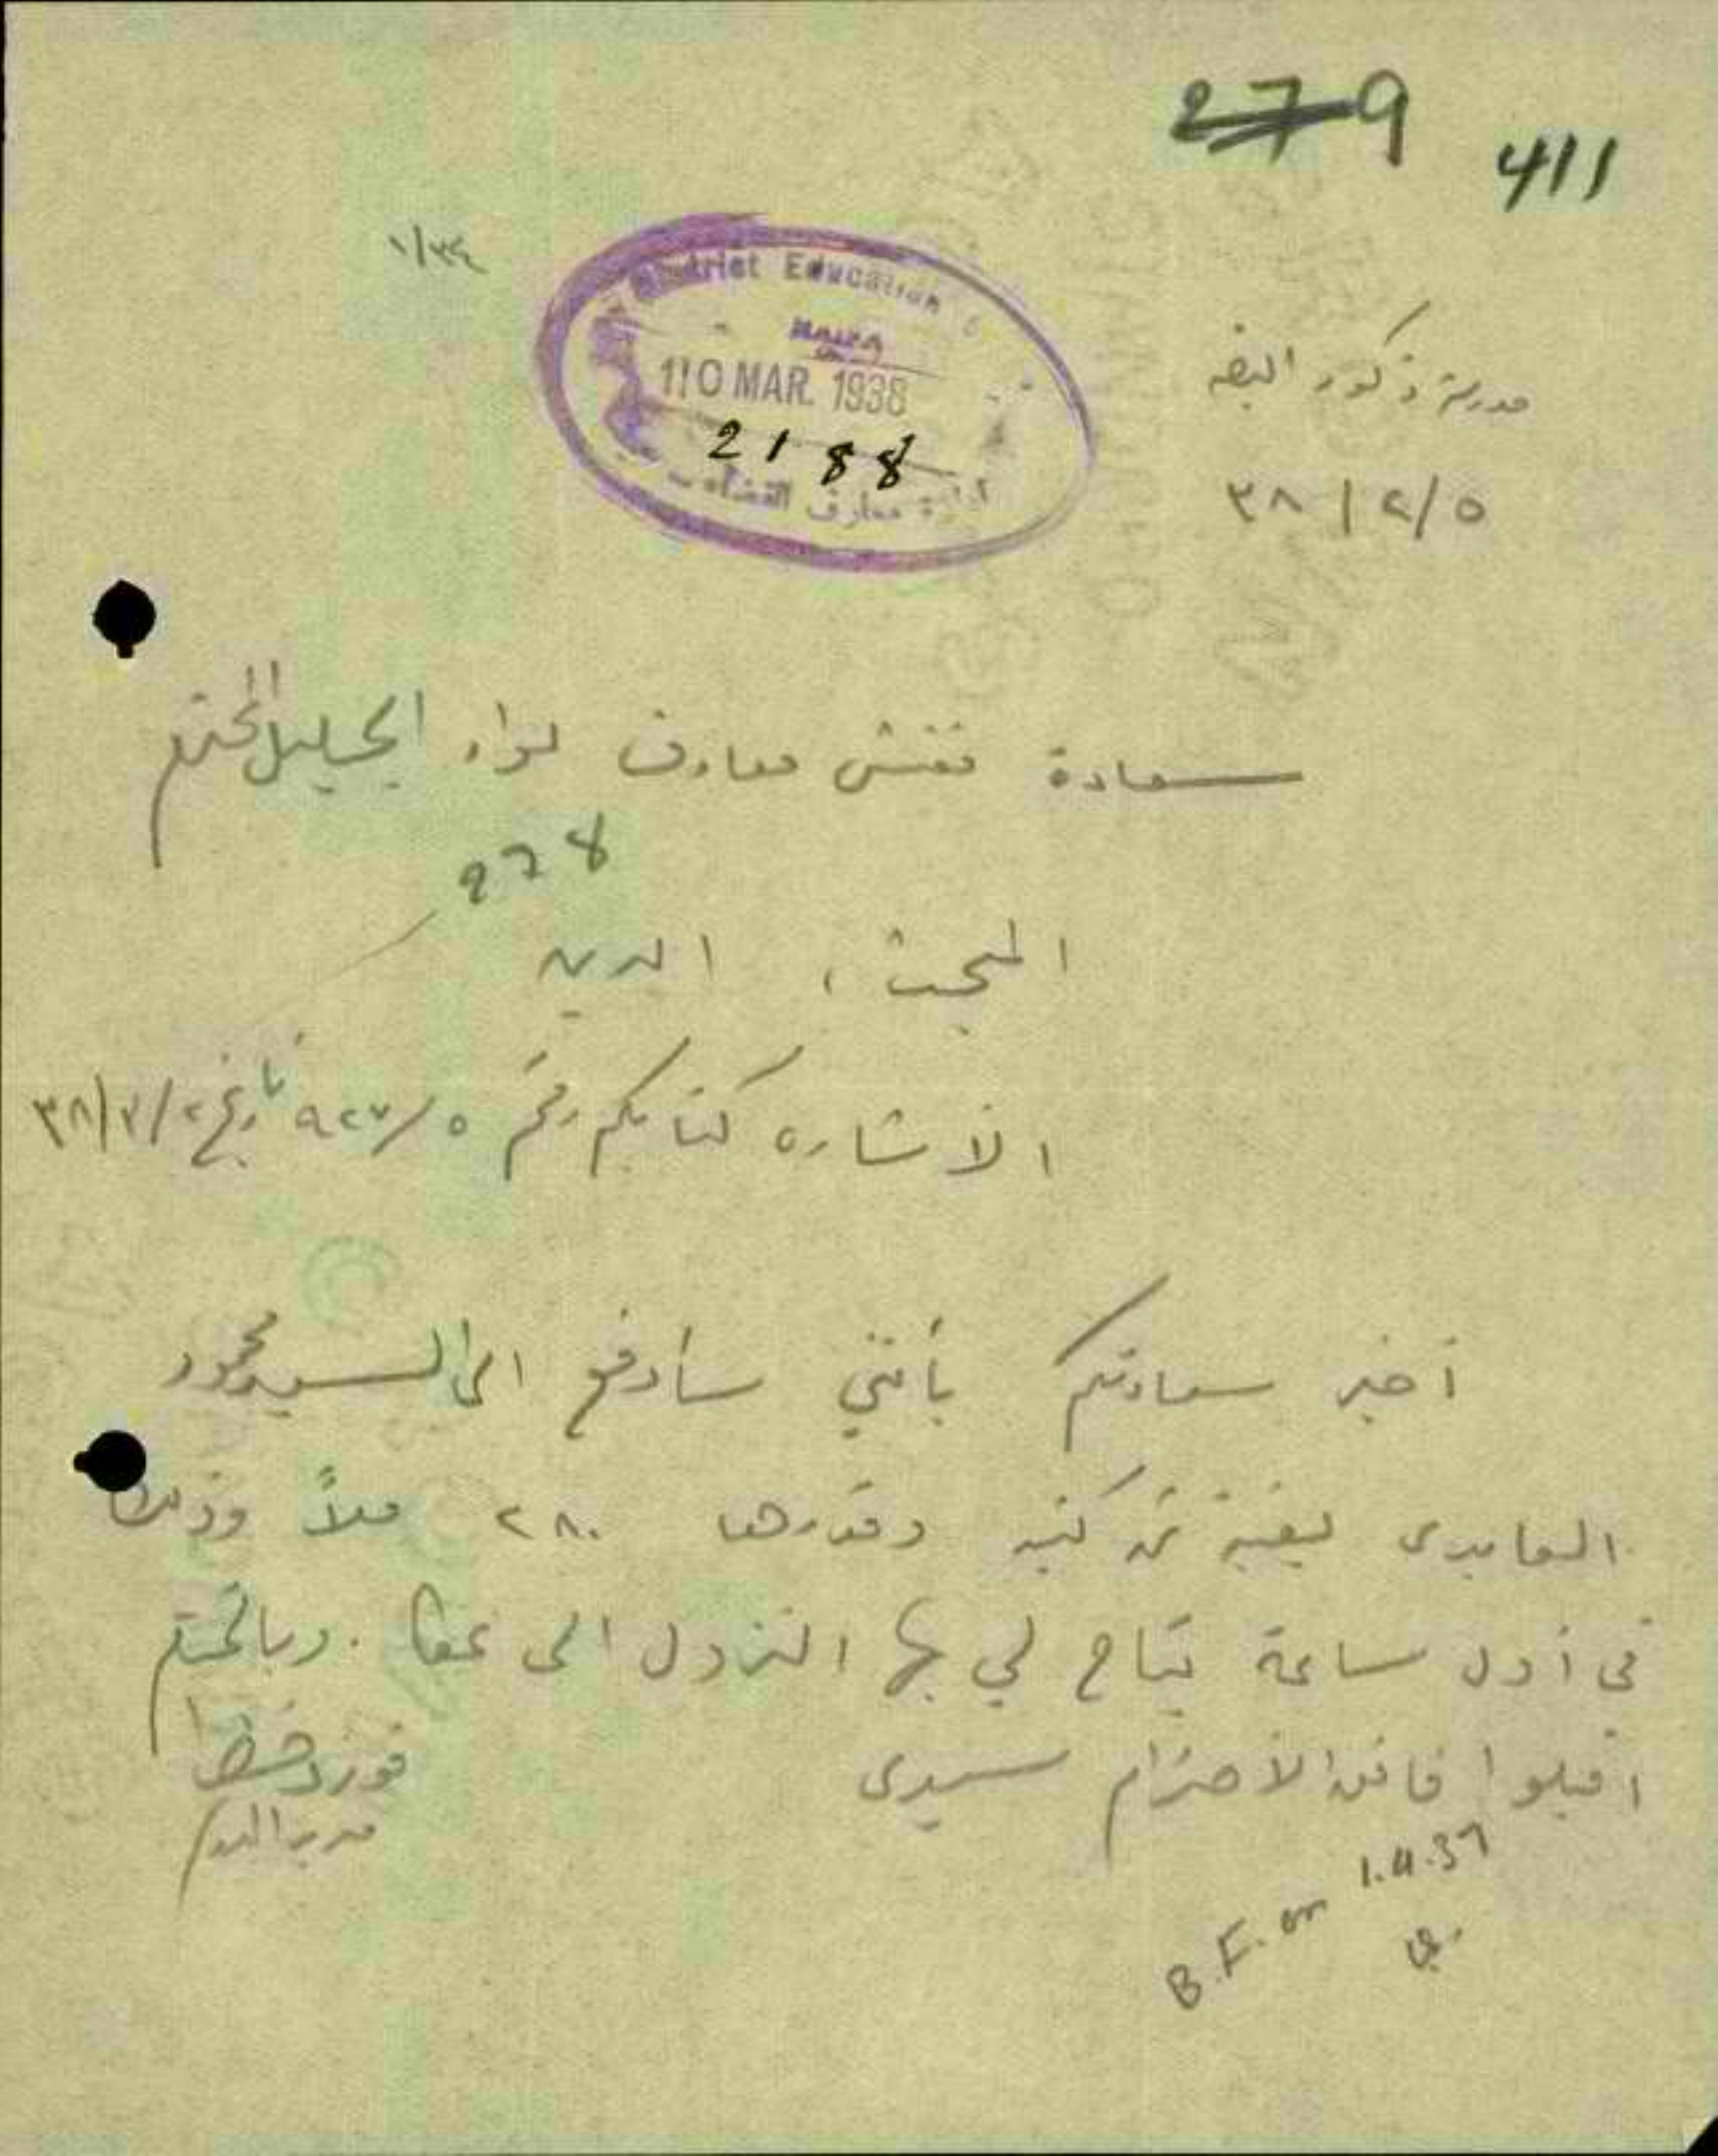 279
411
١/٣٤
District Education
HAIFA
10 MAR. 1938
2188
معارف
مدرسة ذكور البصه
٣٨/٢/٥
سعادة مفتش معارف لواء الجليل المحترم
278
المبحث، الدين
الاشاره كتابكم رقم ٩٢٧/٥ تاريخ ٣٨/٣/٢
أخبر سعادتكم بأنني سأدفع الى السيد محمود
العابدى بقية ثمن كتبه وقدرها ٢٨٠ ملاً وذلك
في أول ساعة يتاح لي بها النزول الى عكا. وبالختام
اقبلوا فائق الأحترام سيدى
مدير المدرسة
B.F. on 1.4.37